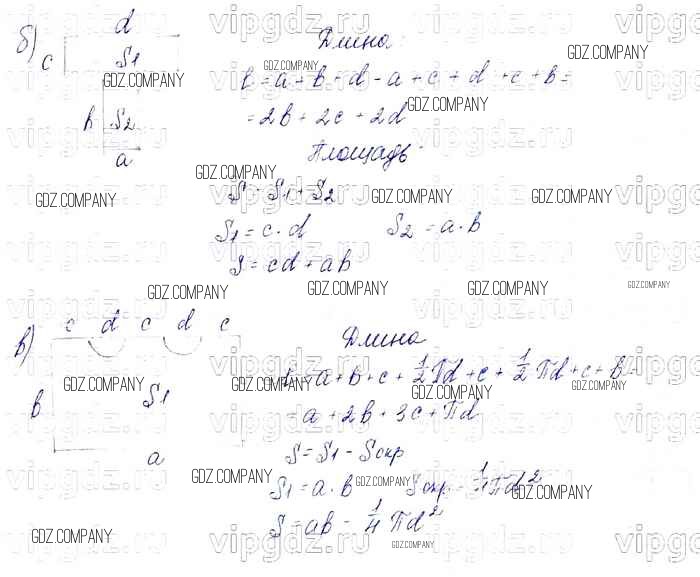 б)
d
c
S1
b
S2
a
Длина:
= a + b + d - a + c + d + c + b =
= 2b + 2c + 2d
Площадь
S = S1 + S2
S1 = c · d
S2 = a · b
S = cd + ab
в)
c d c d c
b
S1
a
Длина
= a + b + c + 1/2 πd + c + 1/2 πd + c + b =
= a + 2b + 3c + πd
S = S1 - Sокр
S1 = a · b
Sокр = 1/4 πd²
S = ab - 1/4 πd²
GDZ.COMPANY
vipgdz.ru